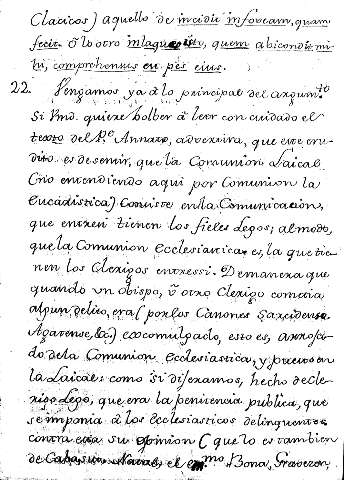 Clasicos) aquello de incidit in foveam, quam
fecit. ô lo otro in laqueo isto, quem abscondit mi-
hi, comprehensus est pes eius.
22. Vengamos ya â lo principal del argum.to
Si Vmd. quiere bolber â leer con cuidado el
texto del P.e Annato, advertira, que este eru-
dito es de sentir, que la Comunion Laical
(no entendiendo aqui por Comunion la
Eucaristica) consiste en la Comunicacion,
que entre si tienen los fieles Legos; al modo,
que la Comunion Ecclesiastica es, la que tie-
nen los Clerigos entressi. De manera que
quando vn obispo, ô otro Clerigo cometia
algun delito, era (por los Canones Sardicense
Agatense, &c.) excomulgado, esto es, arroja-
do de la Comunion Ecclesiastica, y puesto en
la Laical: como si dijeramos, hecho de Cle-
rigo Lego, que era la penitencia publica, que
se imponia â los Ecclesiasticos delinquentes
contra esta su opinion (que lo es tambien
de el em.mo Bona, Graveson,